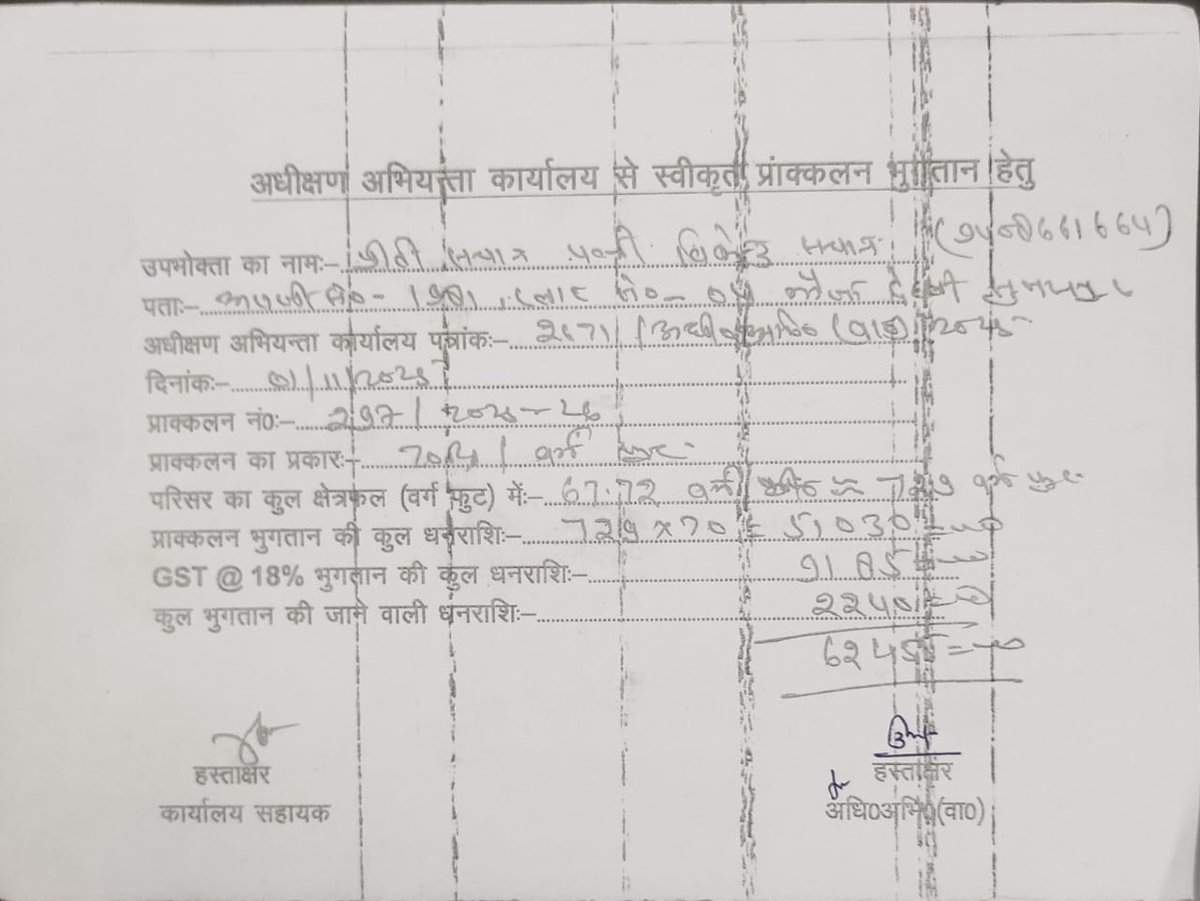 अधीक्षण अभियन्ता कार्यालय से स्वीकृत प्रांक्कलन भुगतान हेतु
उपभोक्ता का नाम:- प्रीती पत्नी
पता:- 
अधीक्षण अभियन्ता कार्यालय पत्रांक:- 2671/
दिनांक:- 01/11/2025
प्राक्कलन नं0:- 297/2025-26
प्राक्कलन का प्रकार:- 70 / वर्ग फुट
परिसर का कुल क्षेत्रफल (वर्ग फुट) में:- 67.72 वर्ग मी० = 729 वर्ग फुट
प्राक्कलन भुगतान की कुल धनराशि:- 729 x 70 = 51030 = 00
GST @ 18% भुगतान की कुल धनराशि:- 9185 = 00
कुल भुगतान की जाने वाली धनराशि:- 2240 = 00
62455 = 00
हस्ताक्षर
कार्यालय सहायक
हस्ताक्षर
अधि0अभि0(वा0)